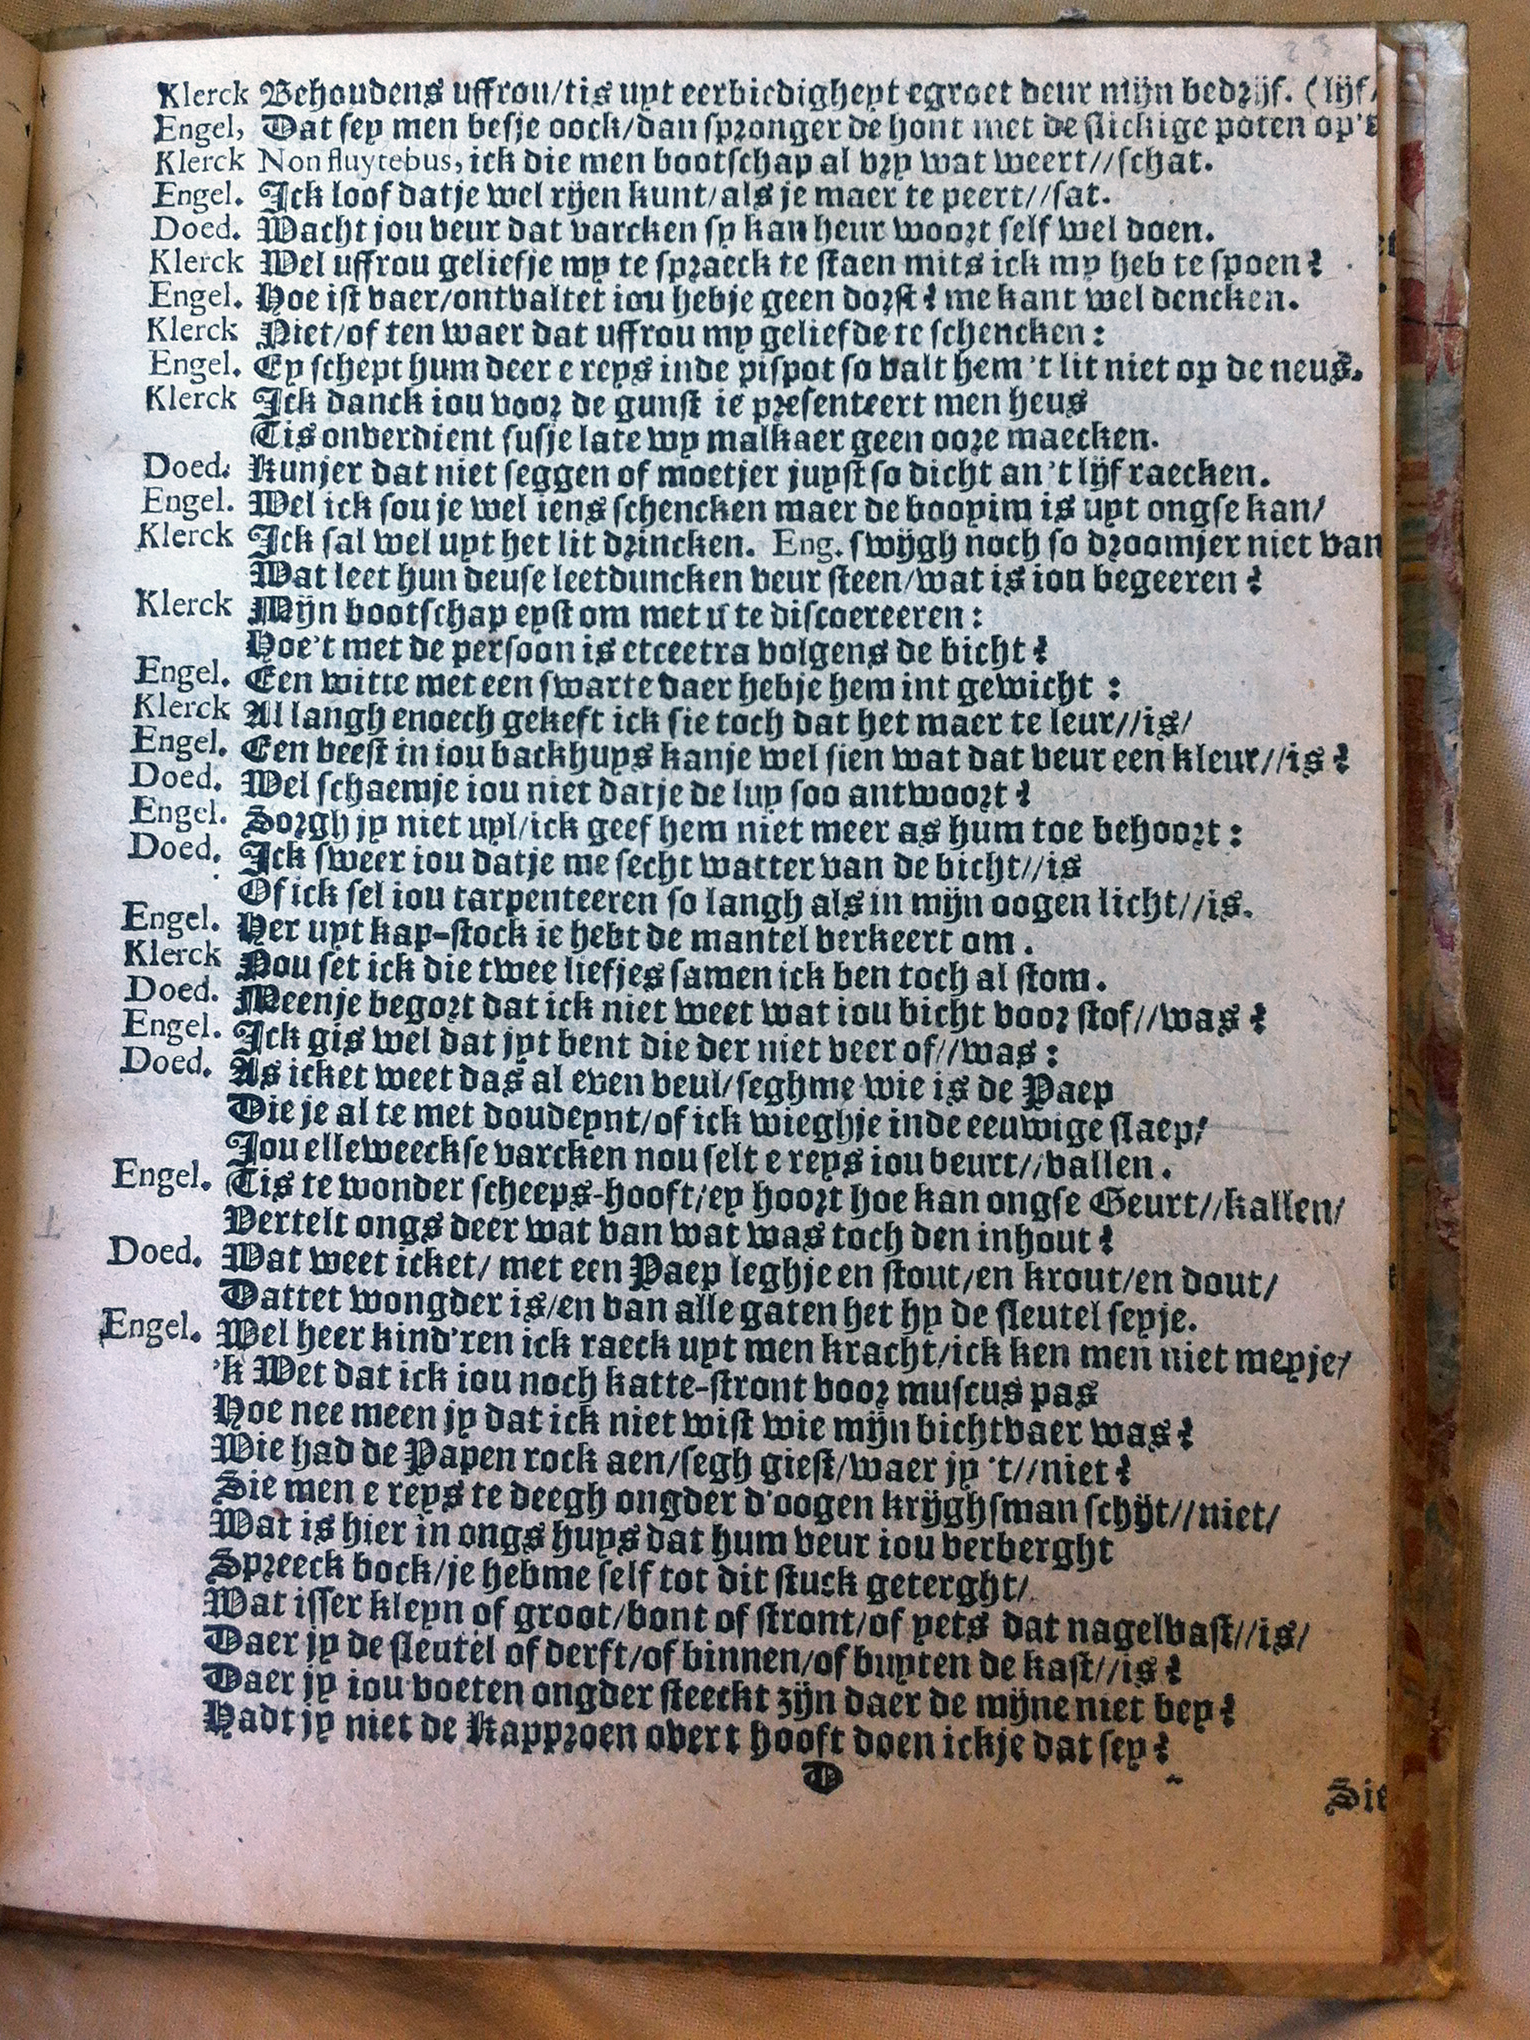 Klerck Behoudens uffrou/tis uyt eerbiedigheyt egroet deur mijn bedrijf. (lijf/
Engel, Dat sey men besje oock/dan spronger de hont met de slickige poten op't
Klerck Non fluytebus, ick die men bootschap al vry wat weert//schat.
Engel. Ick loof datje wel rijen kunt/als je maer te peert//sat.
Doed. Wacht jou veur dat varcken sy kan heur woort self wel doen.
Klerck Wel uffrou geliefje my te spraeck te staen mits ick my heb te spoen?
Engel. Hoe ist vaer/ontvaltet iou hebje geen dorst? me kant wel dencken.
Klerck Niet/of ten waer dat uffrou my geliefde te schencken:
Engel. Ey schept hum deer e reys inde pispot so valt hem 't lit niet op de neus.
Klerck Ick danck iou voor de gunst ie presenteert men heus
Tis onverdient susje late wy malkaer geen oore maecken.
Doed. Kunjer dat niet seggen of moetjer juyst so dicht an't lijf raecken.
Engel. Wel ick sou je wel iens schencken maer de booyim is uyt ongse kan/
Klerck Ick sal wel uyt het lit drincken. Eng. swijgh noch so droomjer niet van
Wat leet hun deuse leetduncken veur steen/wat is iou begeeren?
Klerck Mijn bootschap eyst om met u te discoereeren:
Hoe't met de persoon is etceetra volgens de bicht?
Engel. Een witte met een swarte daer hebje hem int gewicht :
Klerck Al langh enoech gekeft ick sie toch dat het maer te leur//is/
Engel. Een veest in iou backhuys kanje wel sien wat dat veur een kleur//is?
Doed. Wel schaemje iou niet datje de luy soo antwoort?
Engel. Sorgh jy niet uyl/ick geef hem niet meer as hum toe behoort:
Doed. Ick sweer iou datje me secht watter van de bicht//is
Of ick sel iou tarpenteeren so langh als in mijn oogen licht//is.
Engel. Her uyt kap-stock ie hebt de mantel verkeert om.
Klerck Nou set ick die twee liefjes samen ick ben toch al stom.
Doed. Meenje begort dat ick niet weet wat iou bicht voor stof//was?
Engel. Ick gis wel dat jyt bent die der niet veer of//was:
Doed. As icket weet das al even veul/seghme wie is de Paep
Die je al te met doudeynt/of ick wieghje inde eeuwige slaep/
Jou elleweeckse varcken nou selt e reys iou beurt//vallen.
Engel. Tis te wonder scheeps-hooft/ey hoort hoe kan ongse Geurt//kallen/
Vertelt ongs deer wat van wat was toch den inhout?
Doed. Wat weet icket/ met een Paep leghje en stout/en krout/en dout/
Dattet wongder is/en van alle gaten het hy de sleutel seyje.
Engel. Wel heer kind'ren ick raeck uyt men kracht/ick ken men niet meyje/
'k Wet dat ick iou noch katte-stront voor muscus pas
Hoe nee meen jy dat ick niet wist wie mijn bichtvaer was?
Wie had de Papen rock aen/segh giest/waer jy 't//niet?
Sie men e reys te deegh ongder d'oogen krijghsman schijt//niet/
Wat is hier in ongs huys dat hum veur iou verberght
Spreeck bock/je hebme self tot dit stuck geterght/
Wat isser kleyn of groot/bont of stront/of yets dat nagelvast//is/
Daer jy de sleutel of derft/of binnen/of buyten de kast//is?
Daer jy iou voeten ongder steeckt zijn daer de mijne niet bey?
Hadt jy niet de Kapproen overt hooft doen ickje dat sey?
D
Sie